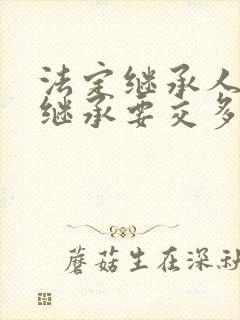 法定继承人
继承要交多
蘑菇生在深